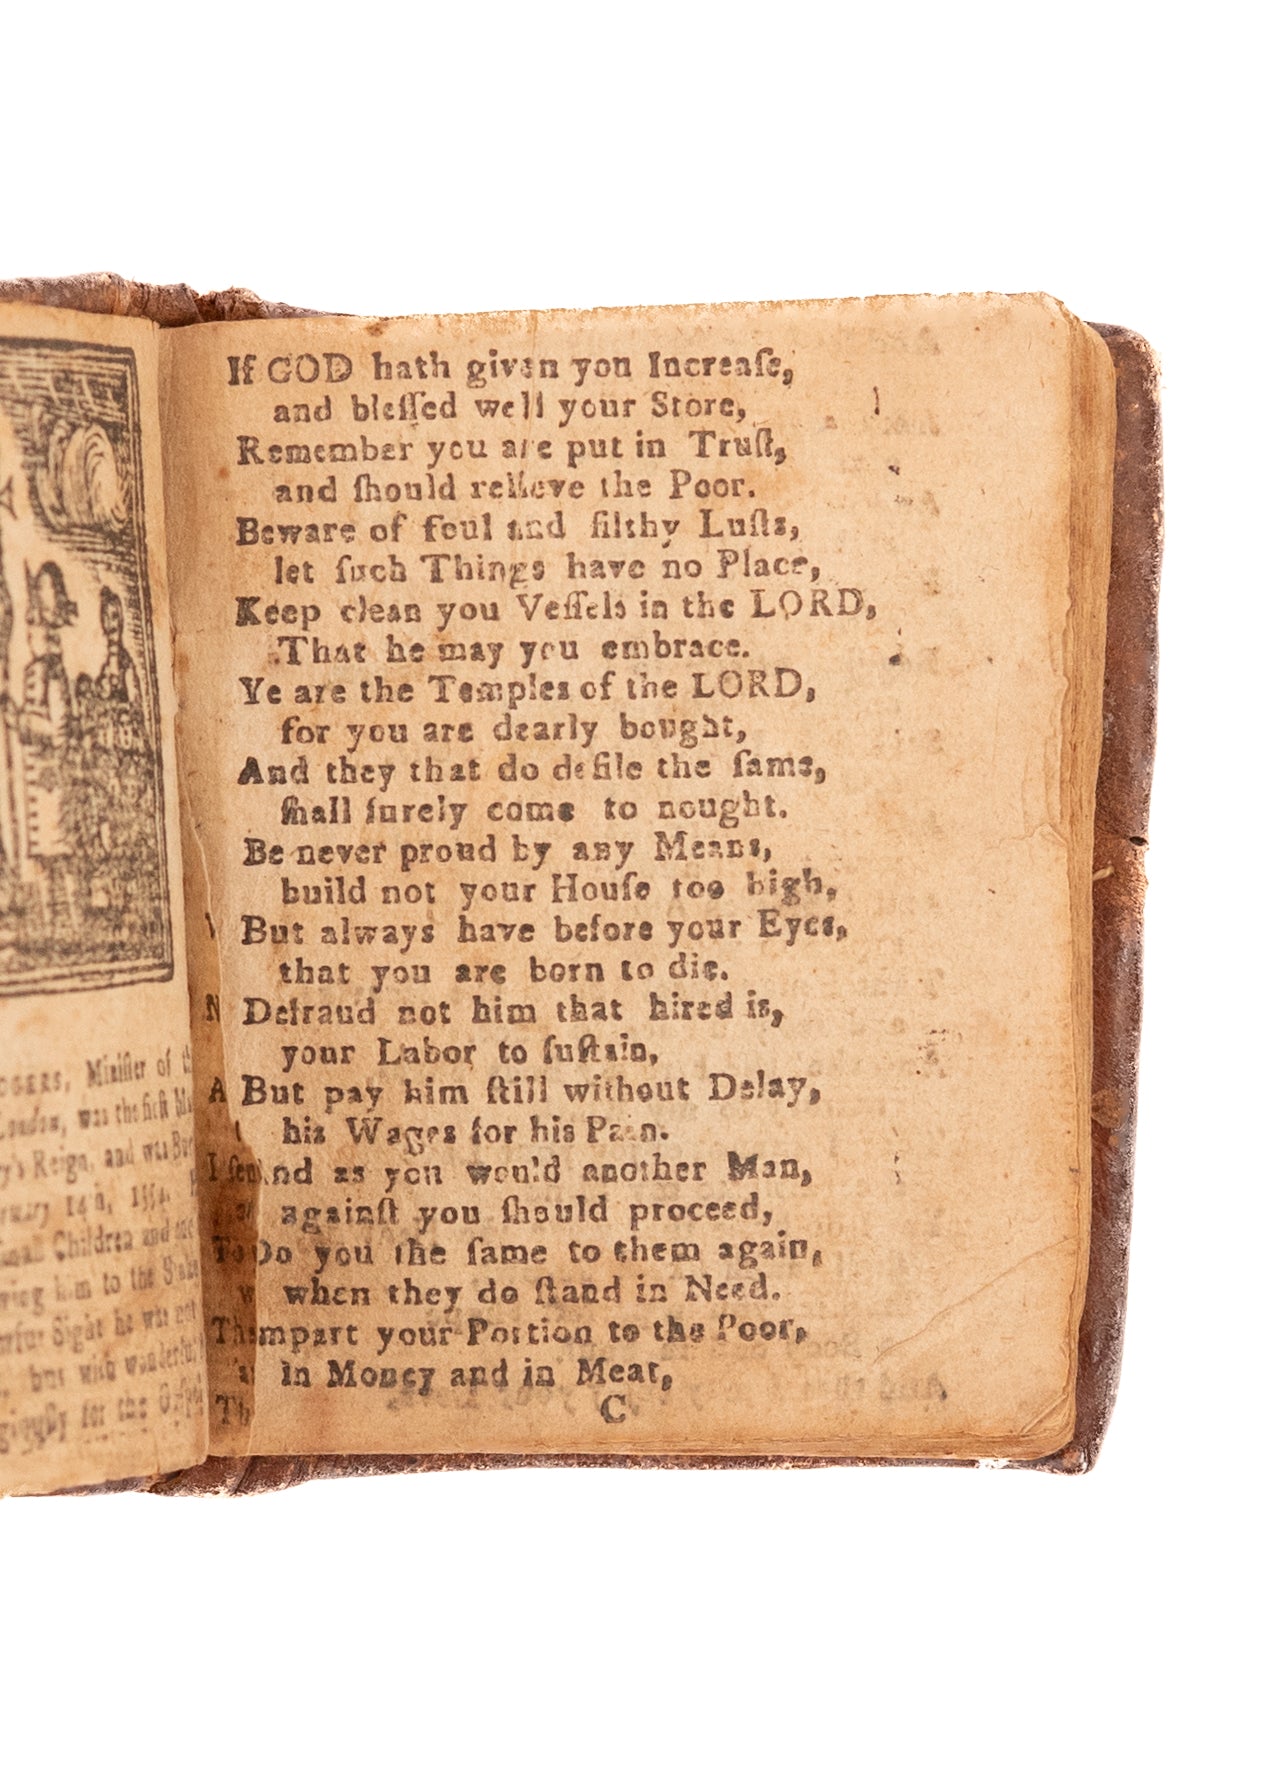 OGERS, Minister of
London, was the first
y's Reign, and was
14th, 1554.
small Children and one
him to the Stake
Sight he was not
but with wonderful
for the
If GOD hath given you Increaſe,
and bleſſed well your Store,
Remember you are put in Truſt,
and ſhould relieve the Poor.
Beware of foul and filthy Luſts,
let ſuch Things have no Place,
Keep clean you Veſſels in the LORD,
That he may you embrace.
Ye are the Temples of the LORD,
for you are dearly bought,
And they that do defile the ſame,
ſhall ſurely come to nought.
Be never proud by any Means,
build not your Houſe too high,
But always have before your Eyes,
that you are born to die.
Defraud not him that hired is,
your Labor to ſuſtain,
But pay him ſtill without Delay,
his Wages for his Pain.
nd as you would another Man,
againſt you ſhould proceed,
Do you the ſame to them again,
when they do ſtand in Need.
mpart your Portion to the Poor,
in Money and in Meat,
C